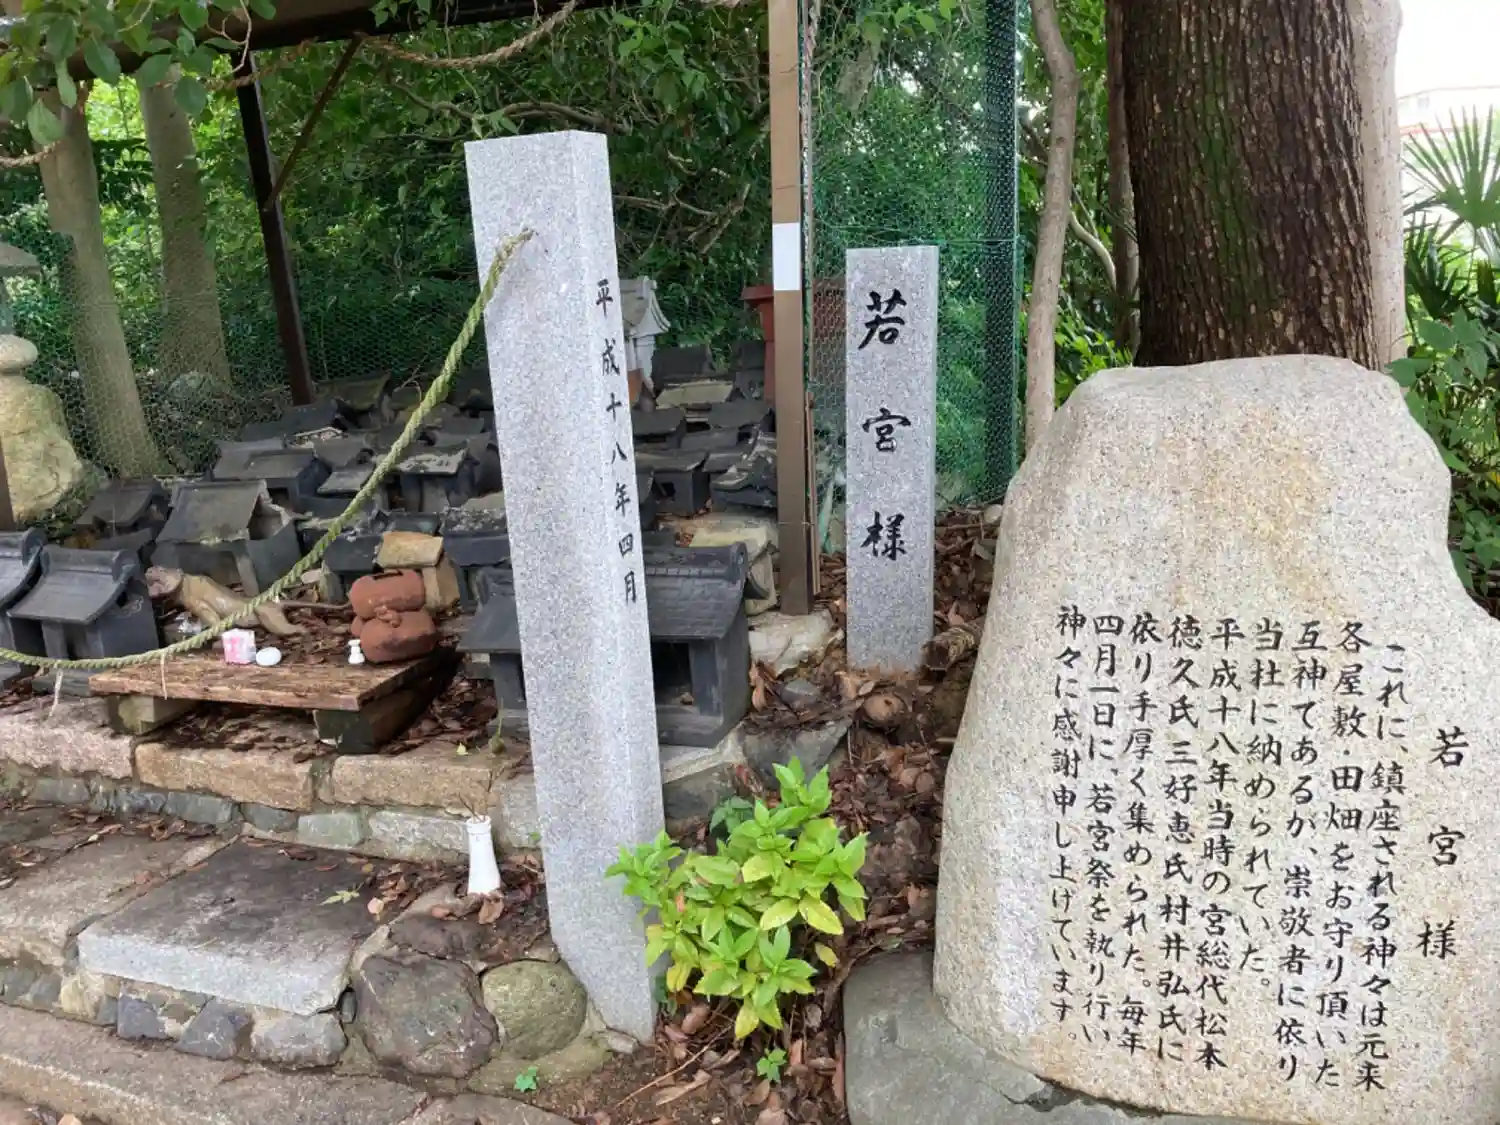 平成十八年四月
若宮様
若宮様
これに、鎮座される神々は元来
各屋敷・田畑をお守り頂いた
互神てあるが、崇敬者に依り
当社に納められていた。
平成十八年当時の宮総代松本
徳久氏三好恵氏村井弘氏に
依り手厚く集められた。毎年
四月一日に、若宮祭を執り行い
神々に感謝申し上げています。